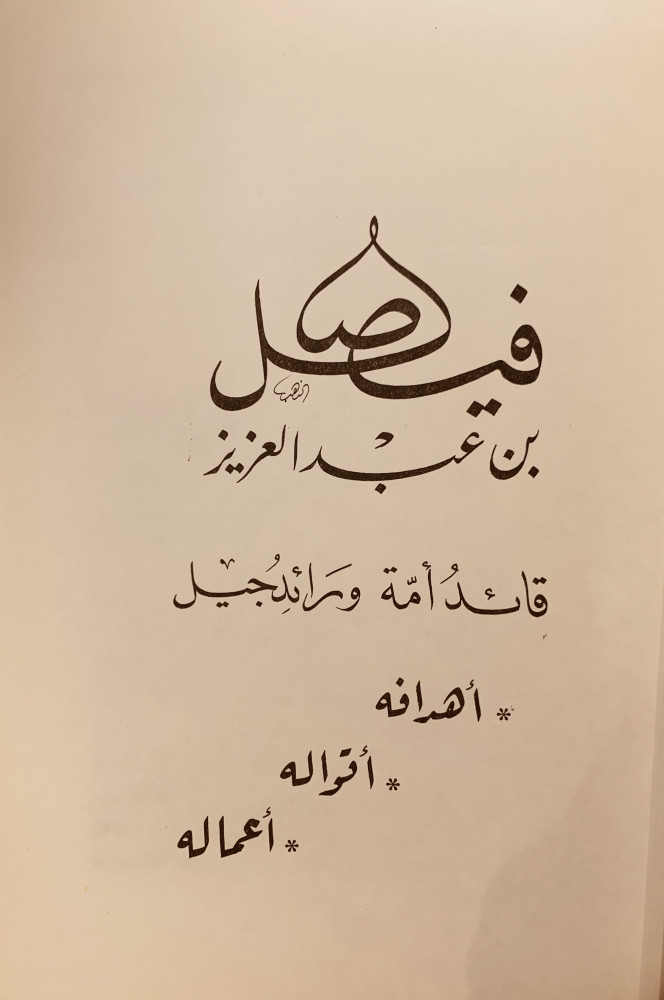 فيصل
بن عبد العزيز
قائدُ أمّة ورَائدِجُيل
* أهدافه
* أقواله
* أعماله